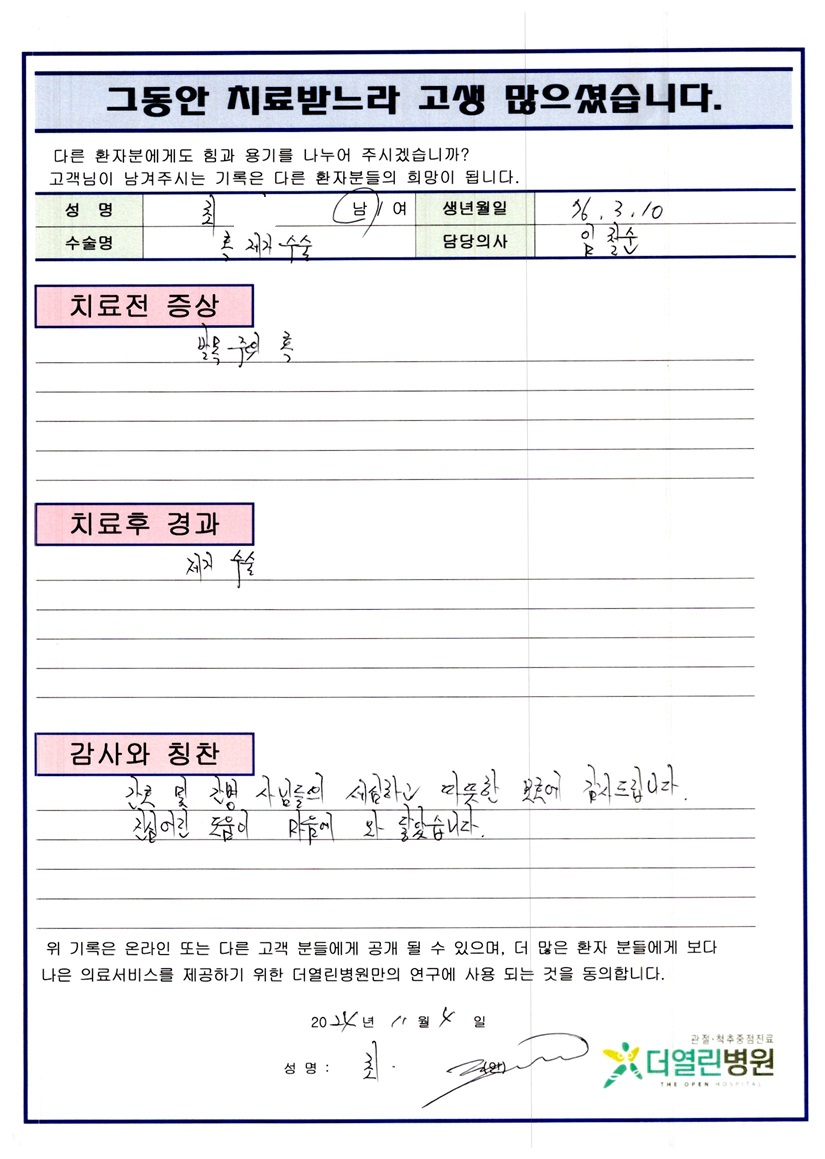 그동안 치료받느라 고생 많으셨습니다.
다른 환자분에게도 힘과 용기를 나누어 주시겠습니까?
고객님이 남겨주시는 기록은 다른 환자분들의 희망이 됩니다.
성 명 최 남 / 여 생년월일 56. 3. 10
수술명 혹 제거 수술 담당의사 임철순
치료전 증상
발목 주위 혹
치료후 경과
제거 수술
감사와 칭찬
간호 및 간병 사님들의 세심하고 따뜻한 보호에 감사드립니다.
진심어린 도움이 마음에 와 닿았습니다.
위 기록은 온라인 또는 다른 고객 분들에게 공개 될 수 있으며, 더 많은 환자 분들에게 보다
나은 의료서비스를 제공하기 위한 더열린병원만의 연구에 사용 되는 것을 동의합니다.
2024년 11월 4일
성 명 : 최
관절·척추중점진료
더열린병원
THE OPEN HOSPITAL